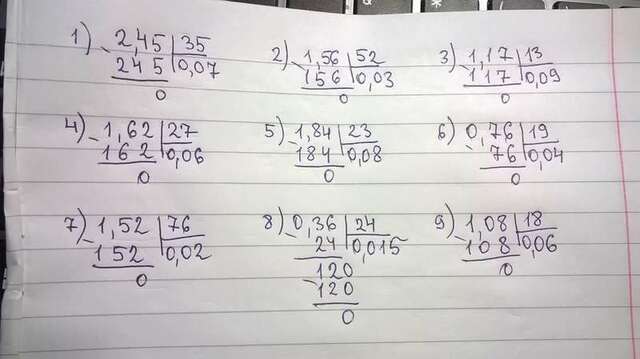 1) 2,45 | 35
245 | 0,07
0
2) 1,56 | 52
156 | 0,03
0
3) 1,17 | 13
117 | 0,09
0
4) 1,62 | 27
162 | 0,06
0
5) 1,84 | 23
184 | 0,08
0
6) 0,76 | 19
76 | 0,04
0
7) 1,52 | 76
152 | 0,02
0
8) 0,36 | 24
24 | 0,015
120
120
0
9) 1,08 | 18
108 | 0,06
0